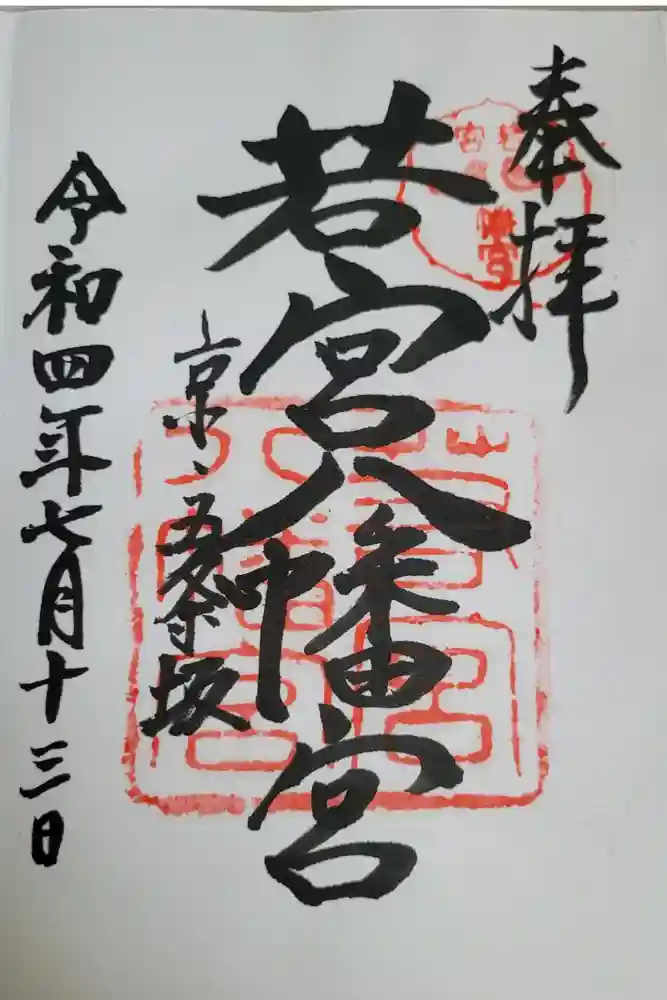 奉拝
若宮八幡宮
京、五条坂
令和四年七月十三日